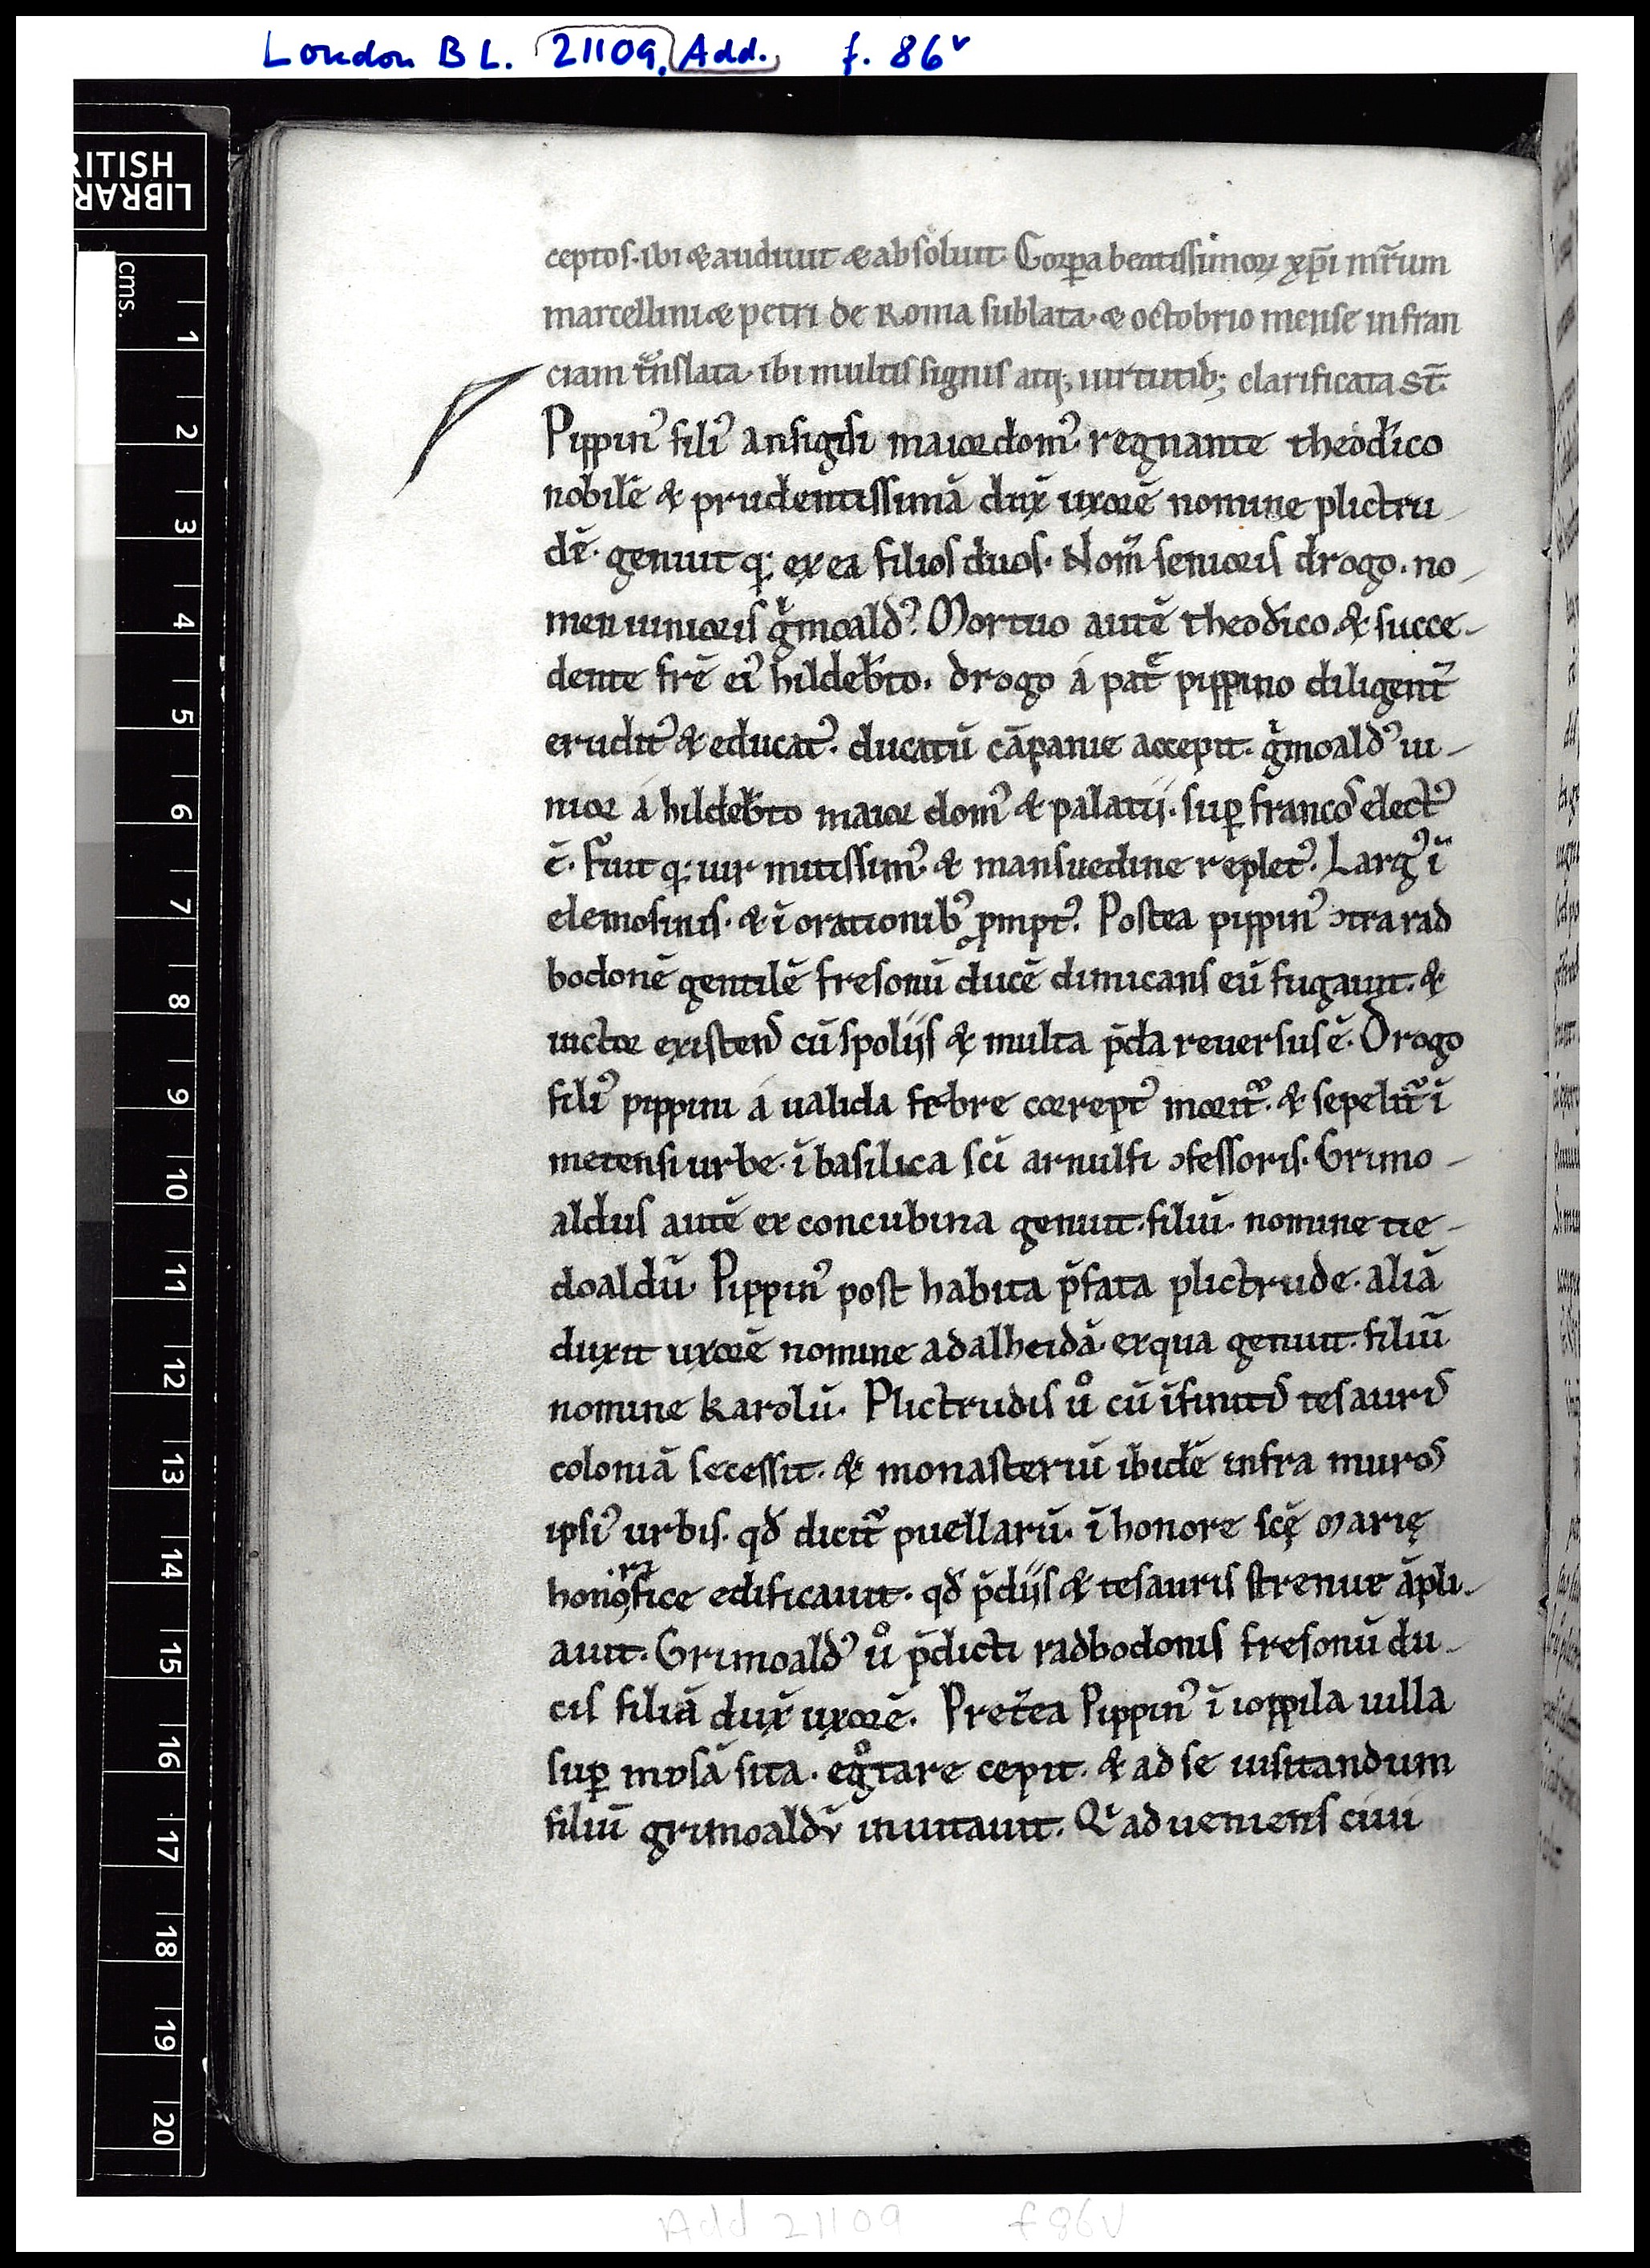 London BL. 21109, Add. f. 86v
BRITISH
LIBRARY
cms.
1
2
3
4
5
6
7
8
9
10
11
12
13
14
15
16
17
18
19
20
ceptos. ibi & audiuit & absoluit. Corꝑa beatissimoꝝ xp̄i mr̄um
marcellini & petri de Roma sublata. & octobrio mense in fran
ciam tͣnslata. ibi multis signis atq; uirtutib; clarificata st̄.
Pippinꝰ filiꝰ ansigisi maior domꝰ. regnante theod̓ico
nobilē & prudentissimā dux̄ uxorē nomine plictru
dē. genuit q; ex ea filios duos. Nom̄ senioris drogo. no
men iunioris gͥmoaldꝰ. Mortuo autē theod̓ico & succe
dente fr̄e eiꝰ hildeb̓to. drogo á pat̄ͤ pippino diligent̄
eruditꝰ & educatꝰ. ducatū cāpanie accepit. gͥmoaldꝰ iu
nior á hildeb̓to maior domꝰ & palatij. suꝑ francos electꝰ
ē. Fuit q; uir mitissimꝰ & mansuedine repletꝰ. Largꝰ ī
elemosinis. & ī orationibꝰ ꝓmptꝰ. Postea pippinꝰ ↄtra rad
bodonē gentilē fresonū ducē dimicans eū fugauit. &
uictor existens cū spolijs & multa p̄da reuersus ē. Drogo
filiꝰ pippini á ualida febre correptꝰ morit̄ᷣ. & sepelit̄ᷣ ī
metensi urbe. ī basilica sc̄i arnulfi ↄfessoris. Grimo
aldus autē ex concubina genuit filiū. nomine tie
doaldū. Pippinꝰ post habita p̄fata plictrude. aliā
duxit uxorē nomine adalheidā. ex qua genuit filiū
nomine karolū. Plictrudis uͦ cū īfinitis tesauris
coloniā secessit. & monasteriū ibidē infra muros
ipsiꝰ urbis. qd̄ dicit̄ᷣ puellarū. ī honore sc̄ę marię
honorifice edificauit. qd̄ p̄dijs & tesauris strenue āpli
auit. Grimoaldꝰ uͦ p̄dicti radbodonis fresonū du
cis filiā dux̄ uxorē. Pret̄ea Pippinꝰ ī ioppila uilla
suꝑ mosā sita. egͦtare cepit. & ad se uisitandum
filiū grimoaldū inuitauit. Qͥ adueniens ciui
Add 21109 f 86v